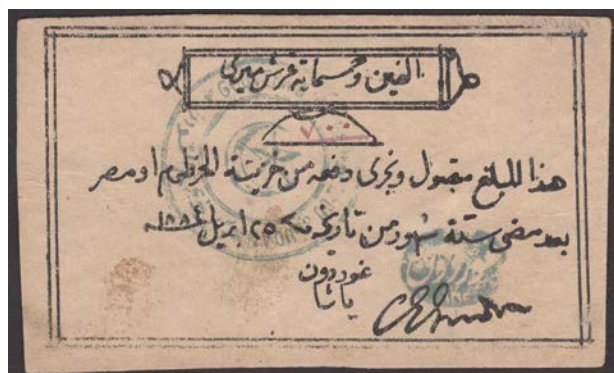 الفين وخمسماية غرش ميرى
٧٠٠
هذا المبلغ مقبول وتجرى دفعه من خزينة الخرطوم او مصر
بعد مضى ستة شهور من تاريخه ٢٥ ابريل ١٨٨٤
غوردون
باشا